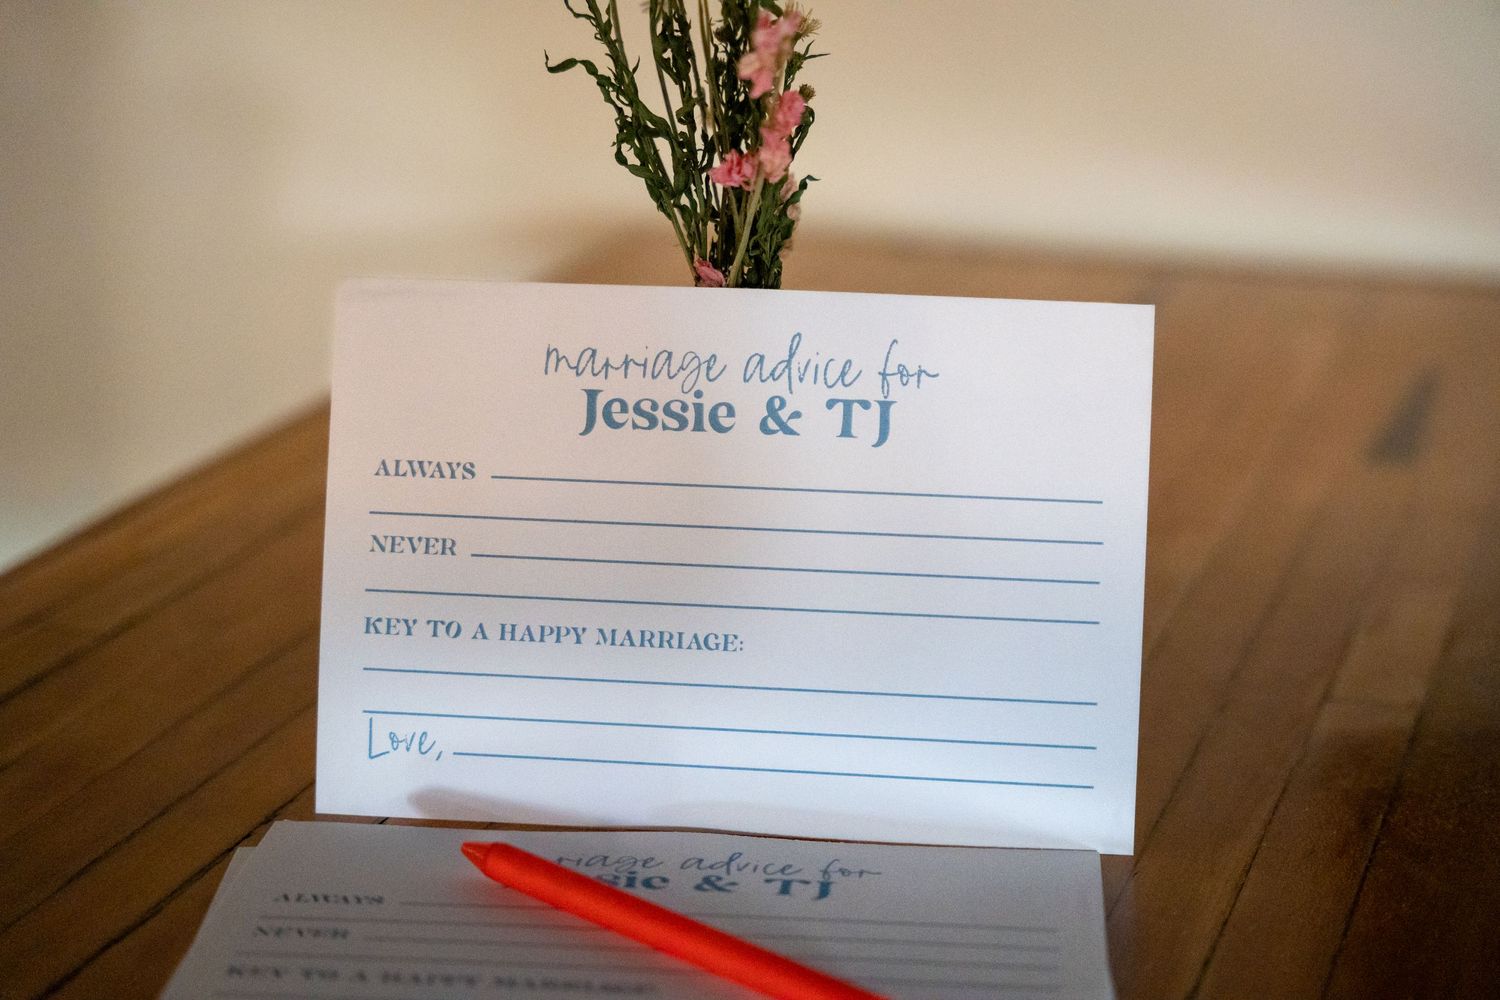 marriage advice for
Jessie & TJ
ALWAYS
NEVER
KEY TO A HAPPY MARRIAGE:
Love,
riage advice for
sie & TJ
ALWAYS
NEVER
KEY TO A HAPPY MARRIAGE: